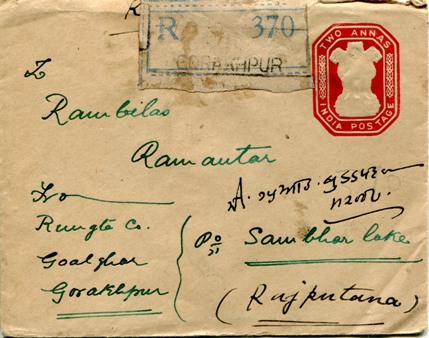 R 370
GORAKHPUR
TWO ANNAS
INDIA POSTAGE
To
Rambilas
Ramautar
From
Rungta Co.
Goalghar
Gorakhpur
Po
Sambhar lake
(Rajputana)